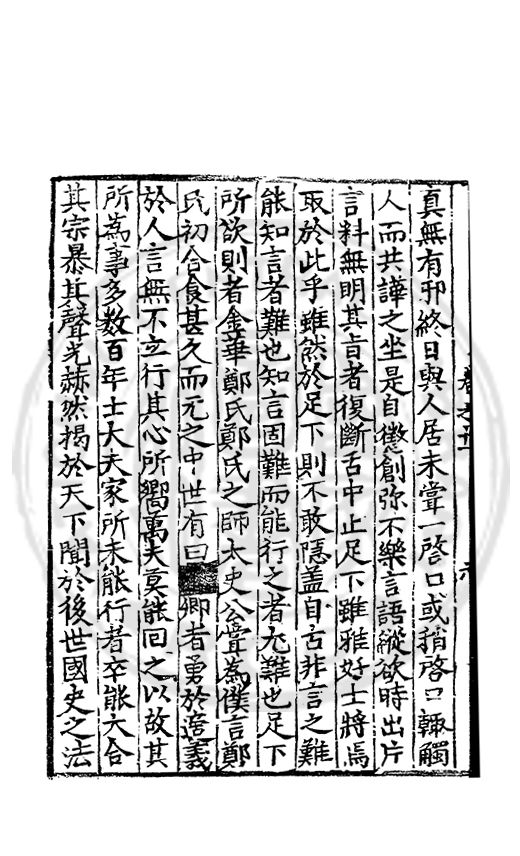 真無有邪終日與人居未甞一啓口或稍啓口輒觸
人而共譁之坐是自懲創弥不樂言語縱欲時出片
言料無明其旨者復斷舌中止足下雖雅好士將焉
取於此乎雖然於足下則不敢隱盖自古非言之難
能知言者難也知言固難而能行之者尤難也足下
所欲則者金華鄭氏鄭氏之師太史公甞為僕言鄭
氏初合食甚久而元之中世有曰卿者勇於為義
於人言無不立行其心所嚮萬夫莫能回之以故其
所為事多数百年士大夫家所未能行者卒能大合
其宗暴其聲光赫然揭於天下聞於後世國史之法